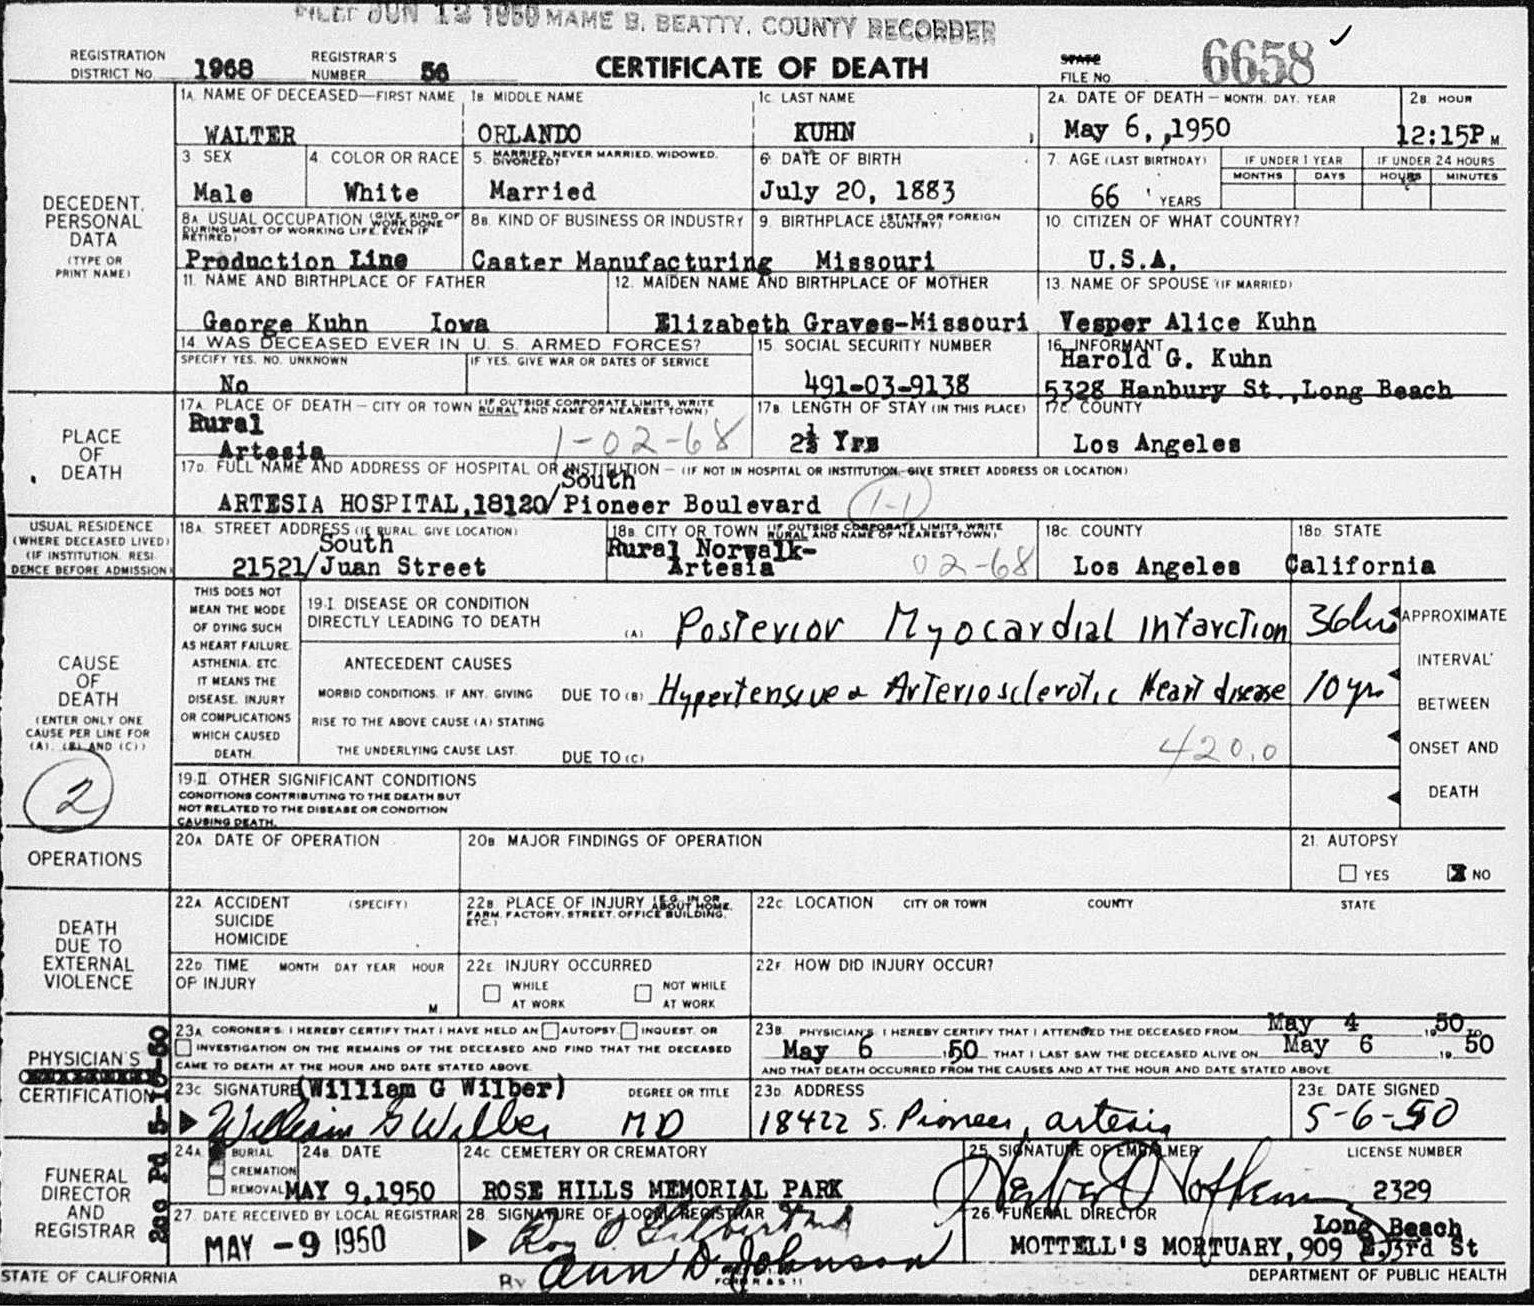 FILED JUN 12 1950 MAME B. BEATTY, COUNTY RECORDER
REGISTRATION DISTRICT NO. 1968 REGISTRAR'S NUMBER 56 CERTIFICATE OF DEATH STATE FILE NO. 6658
DECEDENT PERSONAL DATA (TYPE OR PRINT NAME)
1A. NAME OF DECEASED—FIRST NAME 1B. MIDDLE NAME 1C. LAST NAME 2A. DATE OF DEATH—MONTH, DAY, YEAR 2B. HOUR
WALTER ORLANDO KUHN May 6, 1950 12:15P M
3. SEX 4. COLOR OR RACE 5. MARRIED, NEVER MARRIED, WIDOWED, DIVORCED? 6. DATE OF BIRTH 7. AGE (LAST BIRTHDAY) IF UNDER 1 YEAR IF UNDER 24 HOURS
MONTHS DAYS HOURS MINUTES
Male White Married July 20, 1883 66 YEARS
8A. USUAL OCCUPATION (GIVE KIND OF WORK DONE DURING MOST OF WORKING LIFE, EVEN IF RETIRED) 8B. KIND OF BUSINESS OR INDUSTRY 9. BIRTHPLACE (STATE OR FOREIGN COUNTRY) 10. CITIZEN OF WHAT COUNTRY?
Production Line Caster Manufacturing Missouri U.S.A.
11. NAME AND BIRTHPLACE OF FATHER 12. MAIDEN NAME AND BIRTHPLACE OF MOTHER 13. NAME OF SPOUSE (IF MARRIED)
George Kuhn Iowa Elizabeth Graves-Missouri Vesper Alice Kuhn
14. WAS DECEASED EVER IN U. S. ARMED FORCES? 15. SOCIAL SECURITY NUMBER 16. INFORMANT
SPECIFY YES, NO, UNKNOWN IF YES, GIVE WAR OR DATES OF SERVICE Harold G. Kuhn
No 491-03-9138 5328 Hanbury St., Long Beach
PLACE OF DEATH
17A. PLACE OF DEATH—CITY OR TOWN (IF OUTSIDE CORPORATE LIMITS, WRITE RURAL AND NAME OF NEAREST TOWN) 17B. LENGTH OF STAY (IN THIS PLACE) 17C. COUNTY
Rural
Artesia 1-02-68 2½ Yrs Los Angeles
17D. FULL NAME AND ADDRESS OF HOSPITAL OR INSTITUTION—(IF NOT IN HOSPITAL OR INSTITUTION, GIVE STREET ADDRESS OR LOCATION)
South
ARTESIA HOSPITAL, 18120/Pioneer Boulevard 1-1
USUAL RESIDENCE (WHERE DECEASED LIVED) (IF INSTITUTION, RESIDENCE BEFORE ADMISSION)
18A. STREET ADDRESS (IF RURAL, GIVE LOCATION) 18B. CITY OR TOWN (IF OUTSIDE CORPORATE LIMITS, WRITE RURAL AND NAME OF NEAREST TOWN) 18C. COUNTY 18D. STATE
South Rural Norwalk-
21521/Juan Street Artesia 02-68 Los Angeles California
CAUSE OF DEATH (ENTER ONLY ONE CAUSE PER LINE FOR (A), (B) AND (C)) 2
THIS DOES NOT MEAN THE MODE OF DYING SUCH AS HEART FAILURE, ASTHENIA, ETC. IT MEANS THE DISEASE, INJURY OR COMPLICATIONS WHICH CAUSED DEATH.
19-I. DISEASE OR CONDITION DIRECTLY LEADING TO DEATH (A) Posterior Myocardial Infarction 36 hrs
ANTECEDENT CAUSES
MORBID CONDITIONS, IF ANY, GIVING DUE TO (B) Hypertensive & Arteriosclerotic Heart disease 10 yrs
RISE TO THE ABOVE CAUSE (A) STATING
THE UNDERLYING CAUSE LAST. DUE TO (C) 420.0
APPROXIMATE INTERVAL BETWEEN ONSET AND DEATH
19-II. OTHER SIGNIFICANT CONDITIONS
CONDITIONS CONTRIBUTING TO THE DEATH BUT
NOT RELATED TO THE DISEASE OR CONDITION
CAUSING DEATH.
OPERATIONS
20A. DATE OF OPERATION 20B. MAJOR FINDINGS OF OPERATION 21. AUTOPSY
YES NO
DEATH DUE TO EXTERNAL VIOLENCE
22A. ACCIDENT (SPECIFY) SUICIDE HOMICIDE 22B. PLACE OF INJURY (E.G. IN OR ABOUT HOME, FARM, FACTORY, STREET, OFFICE BUILDING, ETC.) 22C. LOCATION CITY OR TOWN COUNTY STATE
22D. TIME OF INJURY MONTH DAY YEAR HOUR M 22E. INJURY OCCURRED WHILE AT WORK NOT WHILE AT WORK 22F. HOW DID INJURY OCCUR?
PHYSICIAN'S CERTIFICATION
23A. CORONER'S: I HEREBY CERTIFY THAT I HAVE HELD AN AUTOPSY, INQUEST, OR
INVESTIGATION ON THE REMAINS OF THE DECEASED AND FIND THAT THE DECEASED
CAME TO DEATH AT THE HOUR AND DATE STATED ABOVE.
23B. PHYSICIAN'S: I HEREBY CERTIFY THAT I ATTENDED THE DECEASED FROM May 4 1950 TO
May 6 1950 THAT I LAST SAW THE DECEASED ALIVE ON May 6 1950
AND THAT DEATH OCCURRED FROM THE CAUSES AND AT THE HOUR AND DATE STATED ABOVE.
23C. SIGNATURE (William G Wilber) DEGREE OR TITLE 23D. ADDRESS 23E. DATE SIGNED
William G Wilber MD 18422 S. Pioneer, artesia 5-6-50
FUNERAL DIRECTOR AND REGISTRAR
24A. BURIAL CREMATION REMOVAL 24B. DATE 24C. CEMETERY OR CREMATORY 25. SIGNATURE OF EMBALMER LICENSE NUMBER
MAY 9, 1950 ROSE HILLS MEMORIAL PARK 2329
27. DATE RECEIVED BY LOCAL REGISTRAR 28. SIGNATURE OF LOCAL REGISTRAR 26. FUNERAL DIRECTOR Long Beach
MAY -9 1950 Roy O. Gilbert MD MOTTELL'S MORTUARY, 909 E. 3rd St
STATE OF CALIFORNIA By Ann D. Johnson DEPARTMENT OF PUBLIC HEALTH